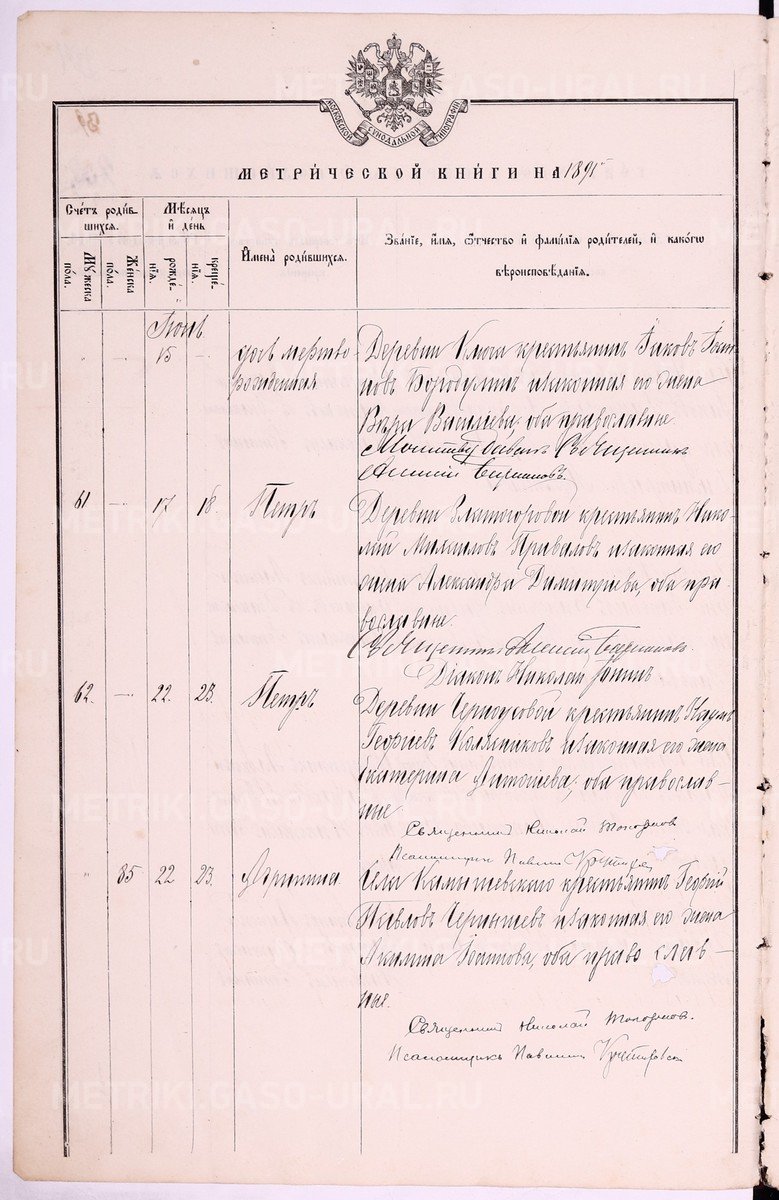 МОСКОВСКОЙ СѴНОДАЛЬНОЙ ТИПОГРАФІИ
МЕТРИЧЕСКОЙ КНИГИ НА 1895
Счетъ родившихся.
Мѣсяцъ и день
Имена родившихся.
Званіе, имя, отчество и фамилія родителей, и какого
вѣроисповѣданія.
Мужеска пола.
Женска пола.
рожденія.
крещенія.
Іюнь
" — 15 — дочь мертво-
рожденная
Деревни Ключа крестьянинъ Іаковъ Іоан-
новъ Бородулинъ и законная его жена
Вѣра Васильева, оба православные.
Молитву давалъ Священникъ
Алексій
61 — 17 18 Петръ
Деревни Златогоровой крестьянинъ Нико-
лай Приваловъ и законная его
жена Александра Димитріева, оба пра-
вославные.
Священникъ Алексій
Діаконъ Николай
62 — 22 23 Петръ
Деревни Черноусовой крестьянинъ Наумъ
Георгіевъ Колясниковъ и законная его жена
Екатерина Антонова, оба православ-
ные.
Священникъ Николай Топорковъ
Псаломщикъ
" 85 22 23 Агрипина
Села Камышевскаго крестьянинъ Георгій
Павловъ Чернышевъ и законная его жена
Акилина Іоаннова, оба православ-
ные.
Священникъ Николай Топорковъ.
Псаломщикъ
METRIKI.GASO-URAL.RU